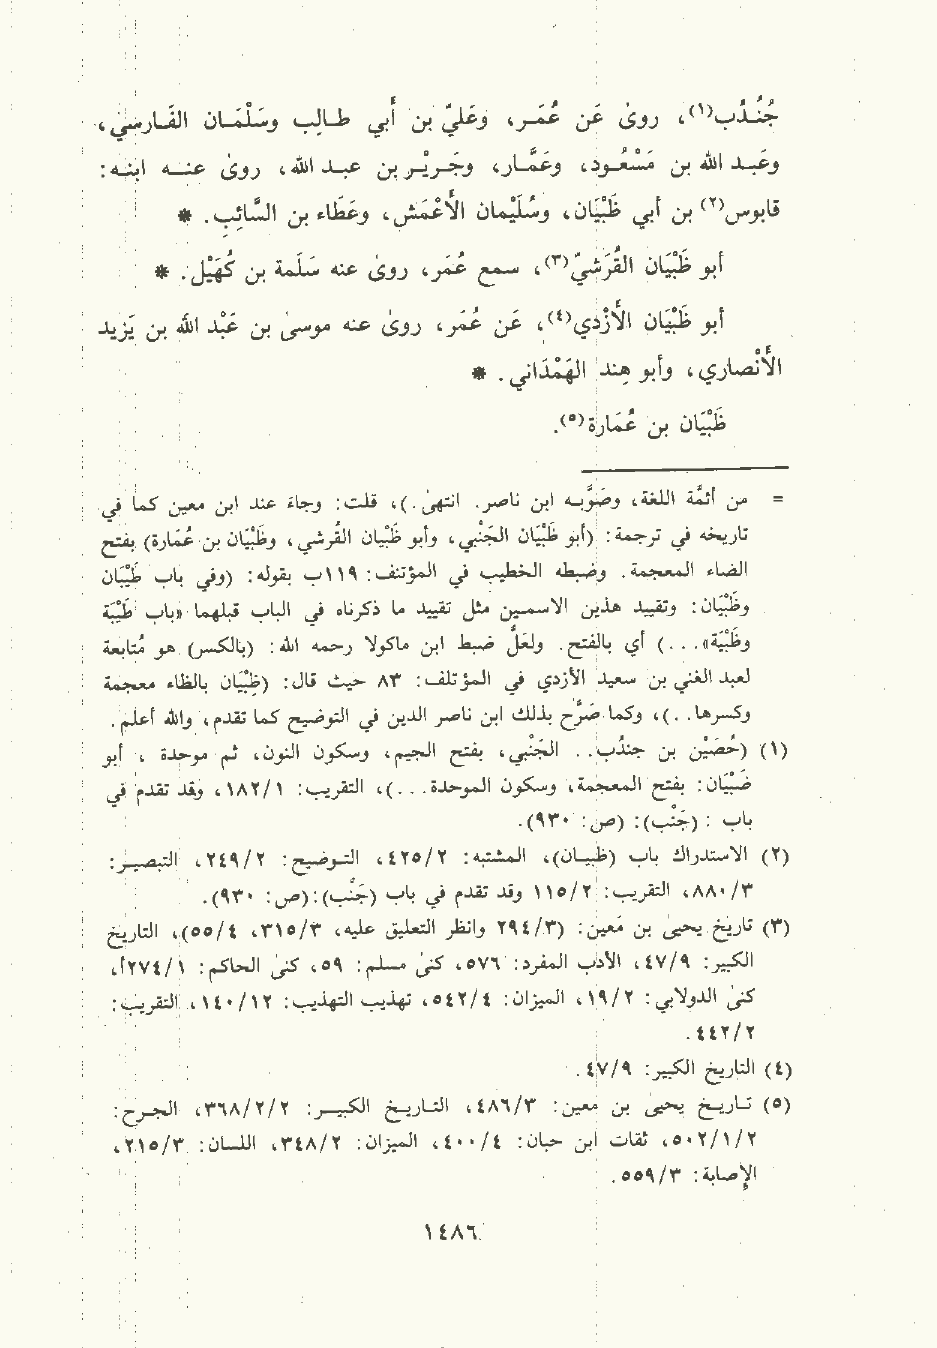 جُنْدُب(١)، روىٰ عَن عُمَـر، وعَليّ بن أَبي طـالِب وسَلْمَان الفَـارسي،
وعَبـد الله بن مَسْعُـود، وعَمَّـار، وجَـريْـر بن عبـد الله، روىٰ عنـه ابنـه:
قابوس(٢) بن أبي ظَبْيَان، وسُلَيْمان الأَعْمَش، وعَطَاء بن السَّائِب. *
أبو ظَبْيَان القُرَشيّ(٣)، سمع عُمَر، روىٰ عنه سَلَمة بن كُهَيْل. *
أبو ظَبْيَان الأَزْدي(٤)، عَن عُمَر، روىٰ عنه موسىٰ بن عَبْد الله بن يَزيد
الأَنْصاري، وأبو هِند الهَمْدَاني. *
ظَبْيَان بن عُمَارة(٥).
= من أئمَّة اللغة، وصَوَّبـه ابن ناصر. انتهىٰ.)، قلت: وجاء عند ابن معين كما في
تاريخه في ترجمة: (أبو ظَبْيَان الجَنْبي، وأبو ظَبْيَان القُرشي، وظَبْيَان بن عُمَارة) بفتح
الضاء المعجمة. وضبطه الخطيب في المؤتنف: ١١٩ب بقوله: (وفي باب ظَبْيَان
وظَبْيَان: وتقييد هذين الاسمين مثل تقييد ما ذكرناه في الباب قبلهما «باب ظَبْيَة
وظَبْيَة»...) أي بالفتح. ولعَلَّ ضبط ابن ماكولا رحمه الله: (بالكسر) هو مُتابعة
لعبد الغني بن سعيد الأزدي في المؤتلف: ٨٣ حيث قال: (ظِبْيان بالظاء معجمة
وكسرها..)، وكما صَرَّح بذلك ابن ناصر الدين في التوضيح كما تقدم، والله أعلم.
(١) (حُصَيْن بن جندُب.. الجَنْبي، بفتح الجيم، وسكون النون، ثم موحدة ، أبو
ضَبْيَان: بفتح المعجمة، وسكون الموحدة...)، التقريب: ١/١٨٢، وقد تقدم في
باب : (جَنْب): (ص: ٩٣٠).
(٢) الاستدراك باب (ظبيـان)، المشتبه: ٢/٤٢٥، التـوضيح: ٢/٢٤٩، التبصيـر:
٣/٨٨٠، التقريب: ٢/١١٥ وقد تقدم في باب (جَنْب):(ص: ٩٣٠).
(٣) تاريخ يحيىٰ بن مَعين: (٣/٢٩٤ وانظر التعليق عليه، ٣/٣١٥، ٤/٥٥)، التاريخ
الكبير: ٩/٤٧، الأدب المفرد: ٥٧٦، كنىٰ مسلم: ٥٩، كنىٰ الحاكم: ١/٢٧٤أ،
كنىٰ الدولابي: ٢/١٩، الميزان: ٤/٥٤٢، تهذيب التهذيب: ١٢/١٤٠، التقريب:
٢/٤٤٢.
(٤) التاريخ الكبير: ٩/٤٧.
(٥) تـاريـخ يحيىٰ بن معين: ٣/٤٨٦، التـاريـخ الكبيـر: ٢/٢/٣٦٨، الجـرح:
٢/١/٥٠٢، ثقات ابن حبان: ٤/٤٠٠، الميزان: ٢/٣٤٨، اللسـان: ٣/٢١٥،
الإصابة: ٣/٥٥٩.
١٤٨٦